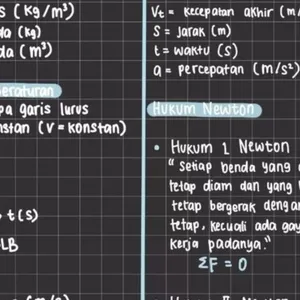 s (kg/m³)
da (kg)
da (m³)
eraturan
pa garis lurus
nstan (v = konstan)
t (s)
LB
Vt = kecepatan akhir (m/
S = Jarak (m)
t = waktu (s)
a = percepatan (m/s²)
Hukum Newton
• Hukum 1 Newton
"setiap benda yang
tetap diam dan yang
tetap bergerak dengan
tetap, kecuali ada gay
kerja padanya."
ΣF = 0